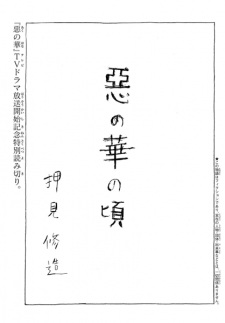 惡の華の頃
押見修造
『惡の華』TVドラマ放送開始記念特別読み切り。